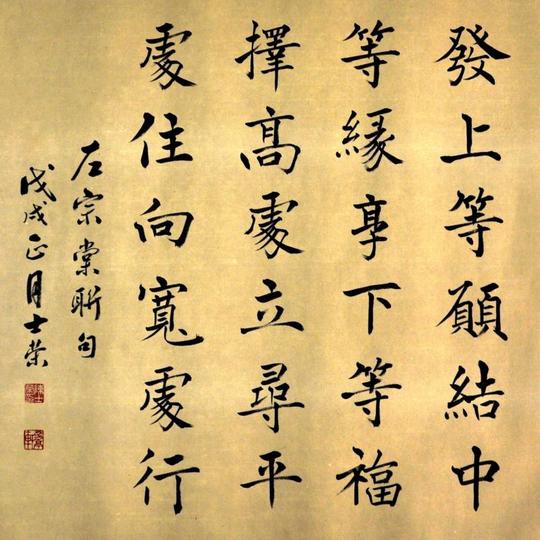 發上等願結中
等緣享下等福
擇高處立尋平
處住向寬處行
左宗棠聯句
戊戌正月士榮